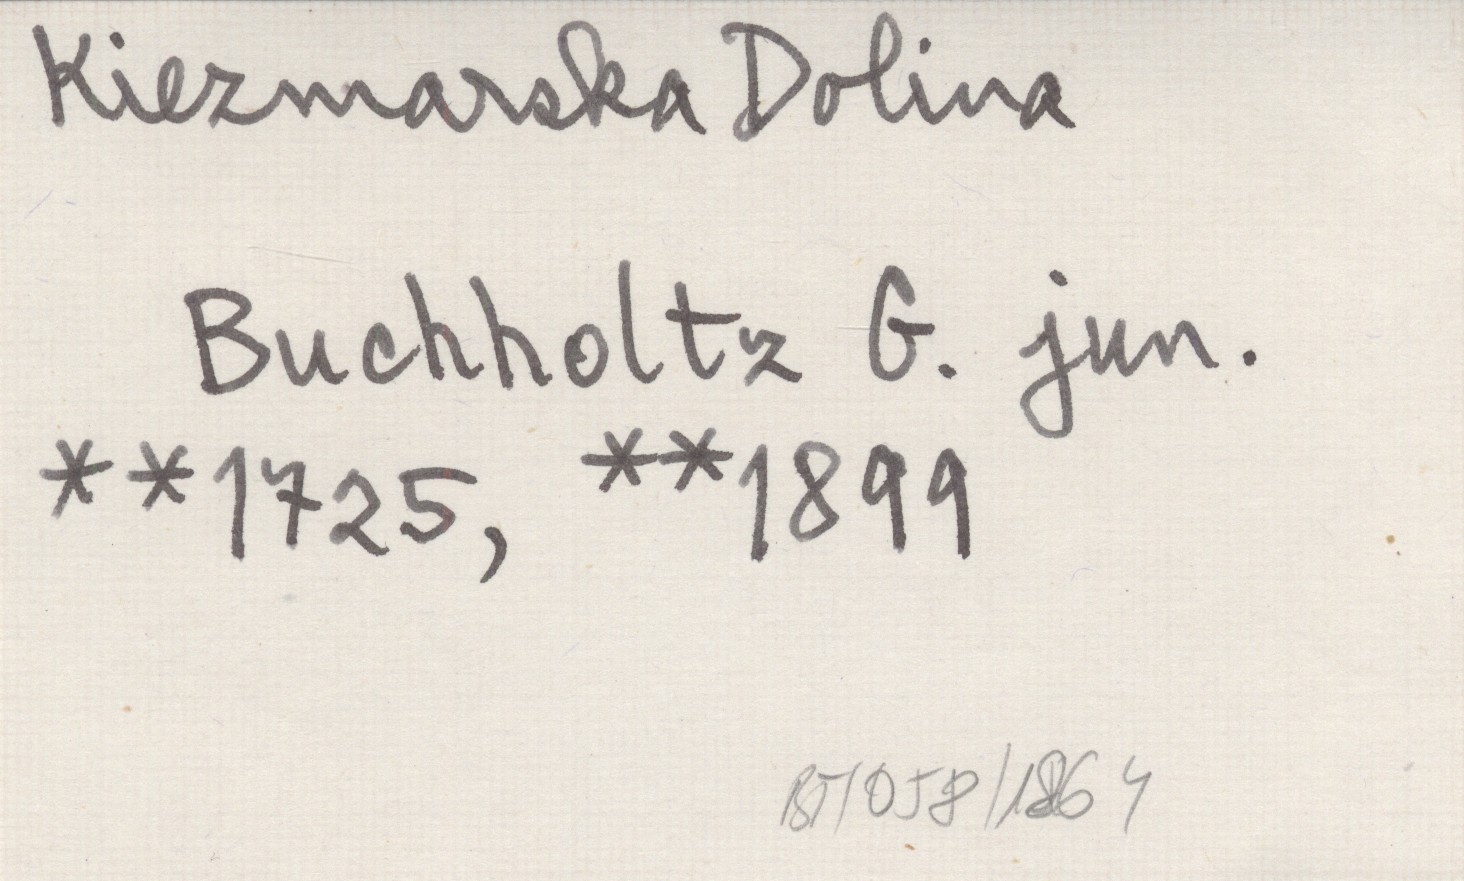 Kiezmarska Dolina
Buchholtz G. jun.
**1725, **1899
BT/058/1864